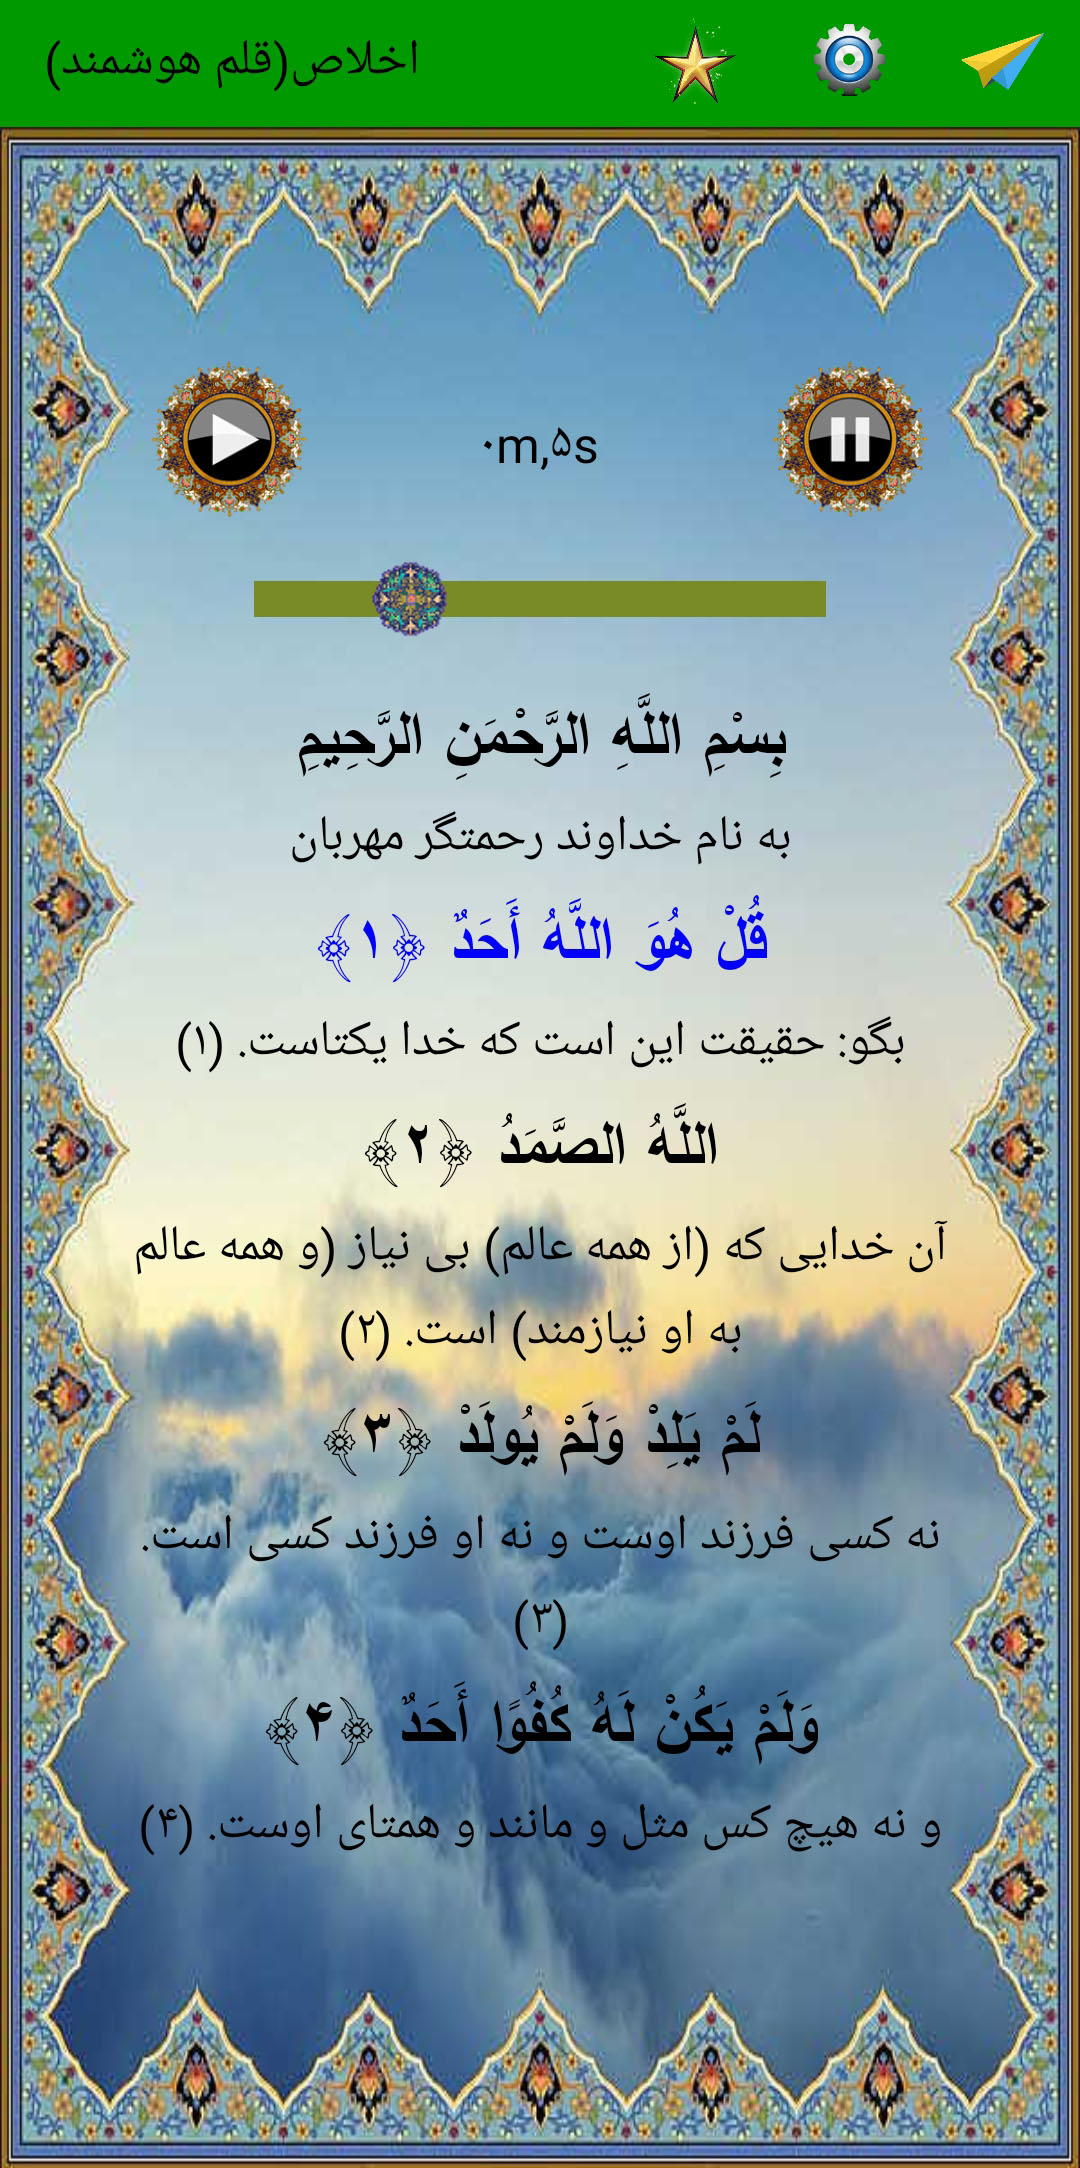 اخلاص(قلم هوشمند)
۰m,۵s
بِسْمِ اللَّهِ الرَّحْمَنِ الرَّحِيمِ
به نام خداوند رحمتگر مهربان
قُلْ هُوَ اللَّهُ أَحَدٌ ﴿۱﴾
بگو: حقیقت این است که خدا یکتاست. (۱)
اللَّهُ الصَّمَدُ ﴿۲﴾
آن خدایی که (از همه عالم) بی نیاز (و همه عالم
به او نیازمند) است. (۲)
لَمْ يَلِدْ وَلَمْ يُولَدْ ﴿۳﴾
نه کسی فرزند اوست و نه او فرزند کسی است.
(۳)
وَلَمْ يَكُنْ لَهُ كُفُوًا أَحَدٌ ﴿۴﴾
و نه هیچ کس مثل و مانند و همتای اوست. (۴)